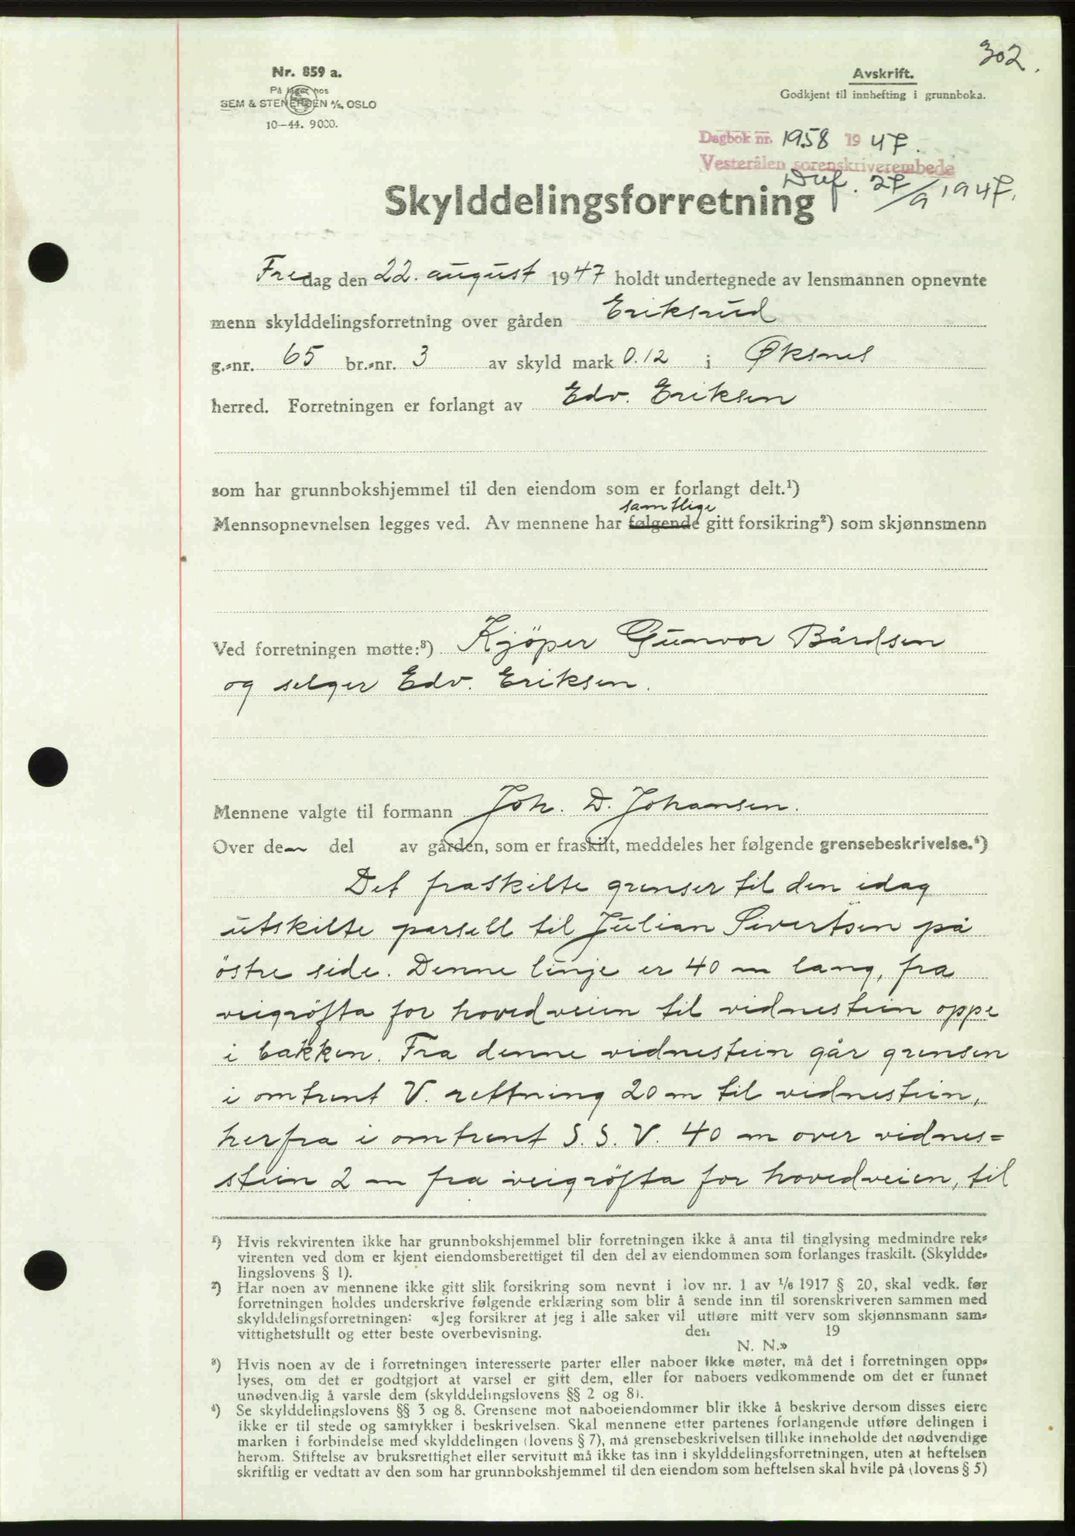 302.
Nr. 859 a.
På lager hos
SEM & STENERSEN A/S, OSLO
10-44. 9000.
Avskrift.
Godkjent til innhefting i grunnboka.
Dagbok nr. 1958 1947.
Vesterålen sorenskriverembede
27/9 1947.
Skylddelingsforretning
Fredag den 22. august 1947 holdt undertegnede av lensmannen opnevnte
menn skylddelingsforretning over gården Eriksrud
g.-nr. 65 br.-nr. 3 av skyld mark 0.12 i Øksnes
herred. Forretningen er forlangt av Edv. Eriksen
som har grunnbokshjemmel til den eiendom som er forlangt delt.¹)
samtlige
Mennsopnevnelsen legges ved. Av mennene har følgende gitt forsikring²) som skjønnsmenn
Ved forretningen møtte:³) Kjöper Gunvor Bårdsen
og selger Edv. Eriksen.
Mennene valgte til formann Joh. D. Johansen.
Over den del av gården, som er fraskilt, meddeles her følgende grensebeskrivelse.⁴)
Det fraskilte grenser til den idag
utskilte parsell til Julian Sivertsen på
östre side. Denne linje er 40 m lang, fra
veigröfta for hovedveien til vidnestein oppe
i bakken. Fra denne vidnestein går grensen
i omtrent V. rettning 20 m til vidnestein,
herfra i omtrent S. S. V. 40 m over vidnes=
stein 2 m fra veigröfta for hovedveien, til
¹) Hvis rekvirenten ikke har grunnbokshjemmel blir forretningen ikke å anta til tinglysing medmindre rek-
virenten ved dom er kjent eiendomsberettiget til den del av eiendommen som forlanges fraskilt. (Skyldde-
lingslovens § 1).
²) Har noen av mennene ikke gitt slik forsikring som nevnt i lov nr. 1 av 1/6 1917 § 20, skal vedk. før
forretningen holdes underskrive følgende erklæring som blir å sende inn til sorenskriveren sammen med
skylddelingsforretningen: «Jeg forsikrer at jeg i alle saker vil utføre mitt verv som skjønnsmann sam-
vittighetsfullt og etter beste overbevisning. den 19
N. N.»
³) Hvis noen av de i forretningen interesserte parter eller naboer ikke møter, må det i forretningen opp-
lyses, om det er godtgjort at varsel er gitt dem, eller for naboers vedkommende om det er funnet
unødvendig å varsle dem (skylddelingslovens §§ 2 og 8).
⁴) Se skylddelingslovens §§ 3 og 8. Grensene mot naboeiendommer blir ikke å beskrive dersom disses eiere
ikke er til stede og samtykker i beskrivelsen. Skal mennene etter partenes forlangende utføre delingen i
marken i forbindelse med skylddelingen (lovens § 7), må grensebeskrivelsen tillike inneholde det nødvendige
herom. Stiftelse av bruksrettighet eller servitutt må ikke tas inn i skylddelingsforretningen, uten at heftelsen
skriftlig er vedtatt av den som har grunnbokshjemmel til den eiendom som heftelsen skal hvile på (lovens § 5)